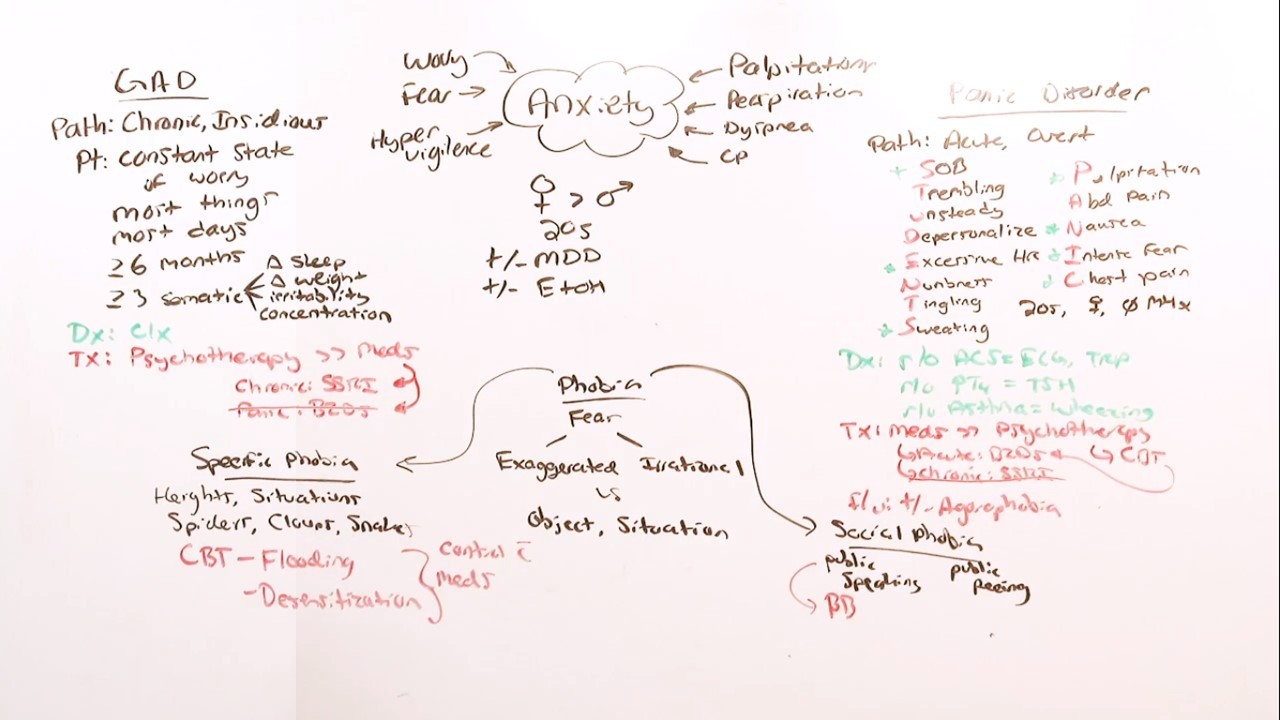 GAD
Path: Chronic, Insidious
Pt: Constant State
of worry
most things
most days
≥6 months
≥3 somatic
Δ Sleep
Δ weight
irritability
concentration
Dx: Clx
Tx: Psychotherapy >> Meds
Chronic: SSRI
Panic: BZDs
Worry
Fear
Hyper
vigilence
Anxiety
Palpitations
Perspiration
Dyspnea
CP
♀ > ♂
20s
+/- MDD
+/- EtOH
Panic Disorder
Path: Acute, Overt
SOB
Trembling
Unsteady
Depersonalize
Excessive HR
Numbness
Tingling
Sweating
Palpitation
Abd Pain
Nausea
Intense Fear
Chest pain
20s, ♀, ∅ MHx
Dx: r/o ACS = ECG, Trop
r/o ↑T4 = TSH
r/o Asthma = wheezing
Tx: Meds >> Psychotherapy
Acute: BZDs
CBT
Chronic: SSRI
f/u: +/- Agoraphobia
Phobia
Fear
Exaggerated Irrational
vs
Object, Situation
Specific Phobia
Heights, Situations
Spiders, Clowns, Snakes
CBT - Flooding
- Desensitization
Control c̄
Meds
Social Phobia
public
Speaking
public
peeing
BB